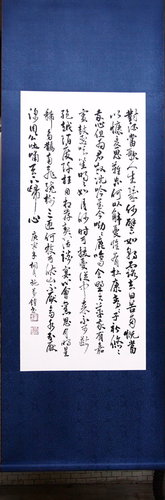 對酒當歌人生幾何譬如朝露去日苦多慨當
以慷憂思難忘何以解憂惟有杜康青青子衿悠悠
我心但為君故沉吟至今呦呦鹿鳴食野之苹我有嘉
賓鼓瑟吹笙明明如月何時可掇憂從中來不可斷
絕越陌度阡枉用相存契闊談讌心念舊恩月明星
稀烏鵲南飛繞樹三匝何枝可依山不厭高水不厭
深周公吐哺天下歸心 庚寅